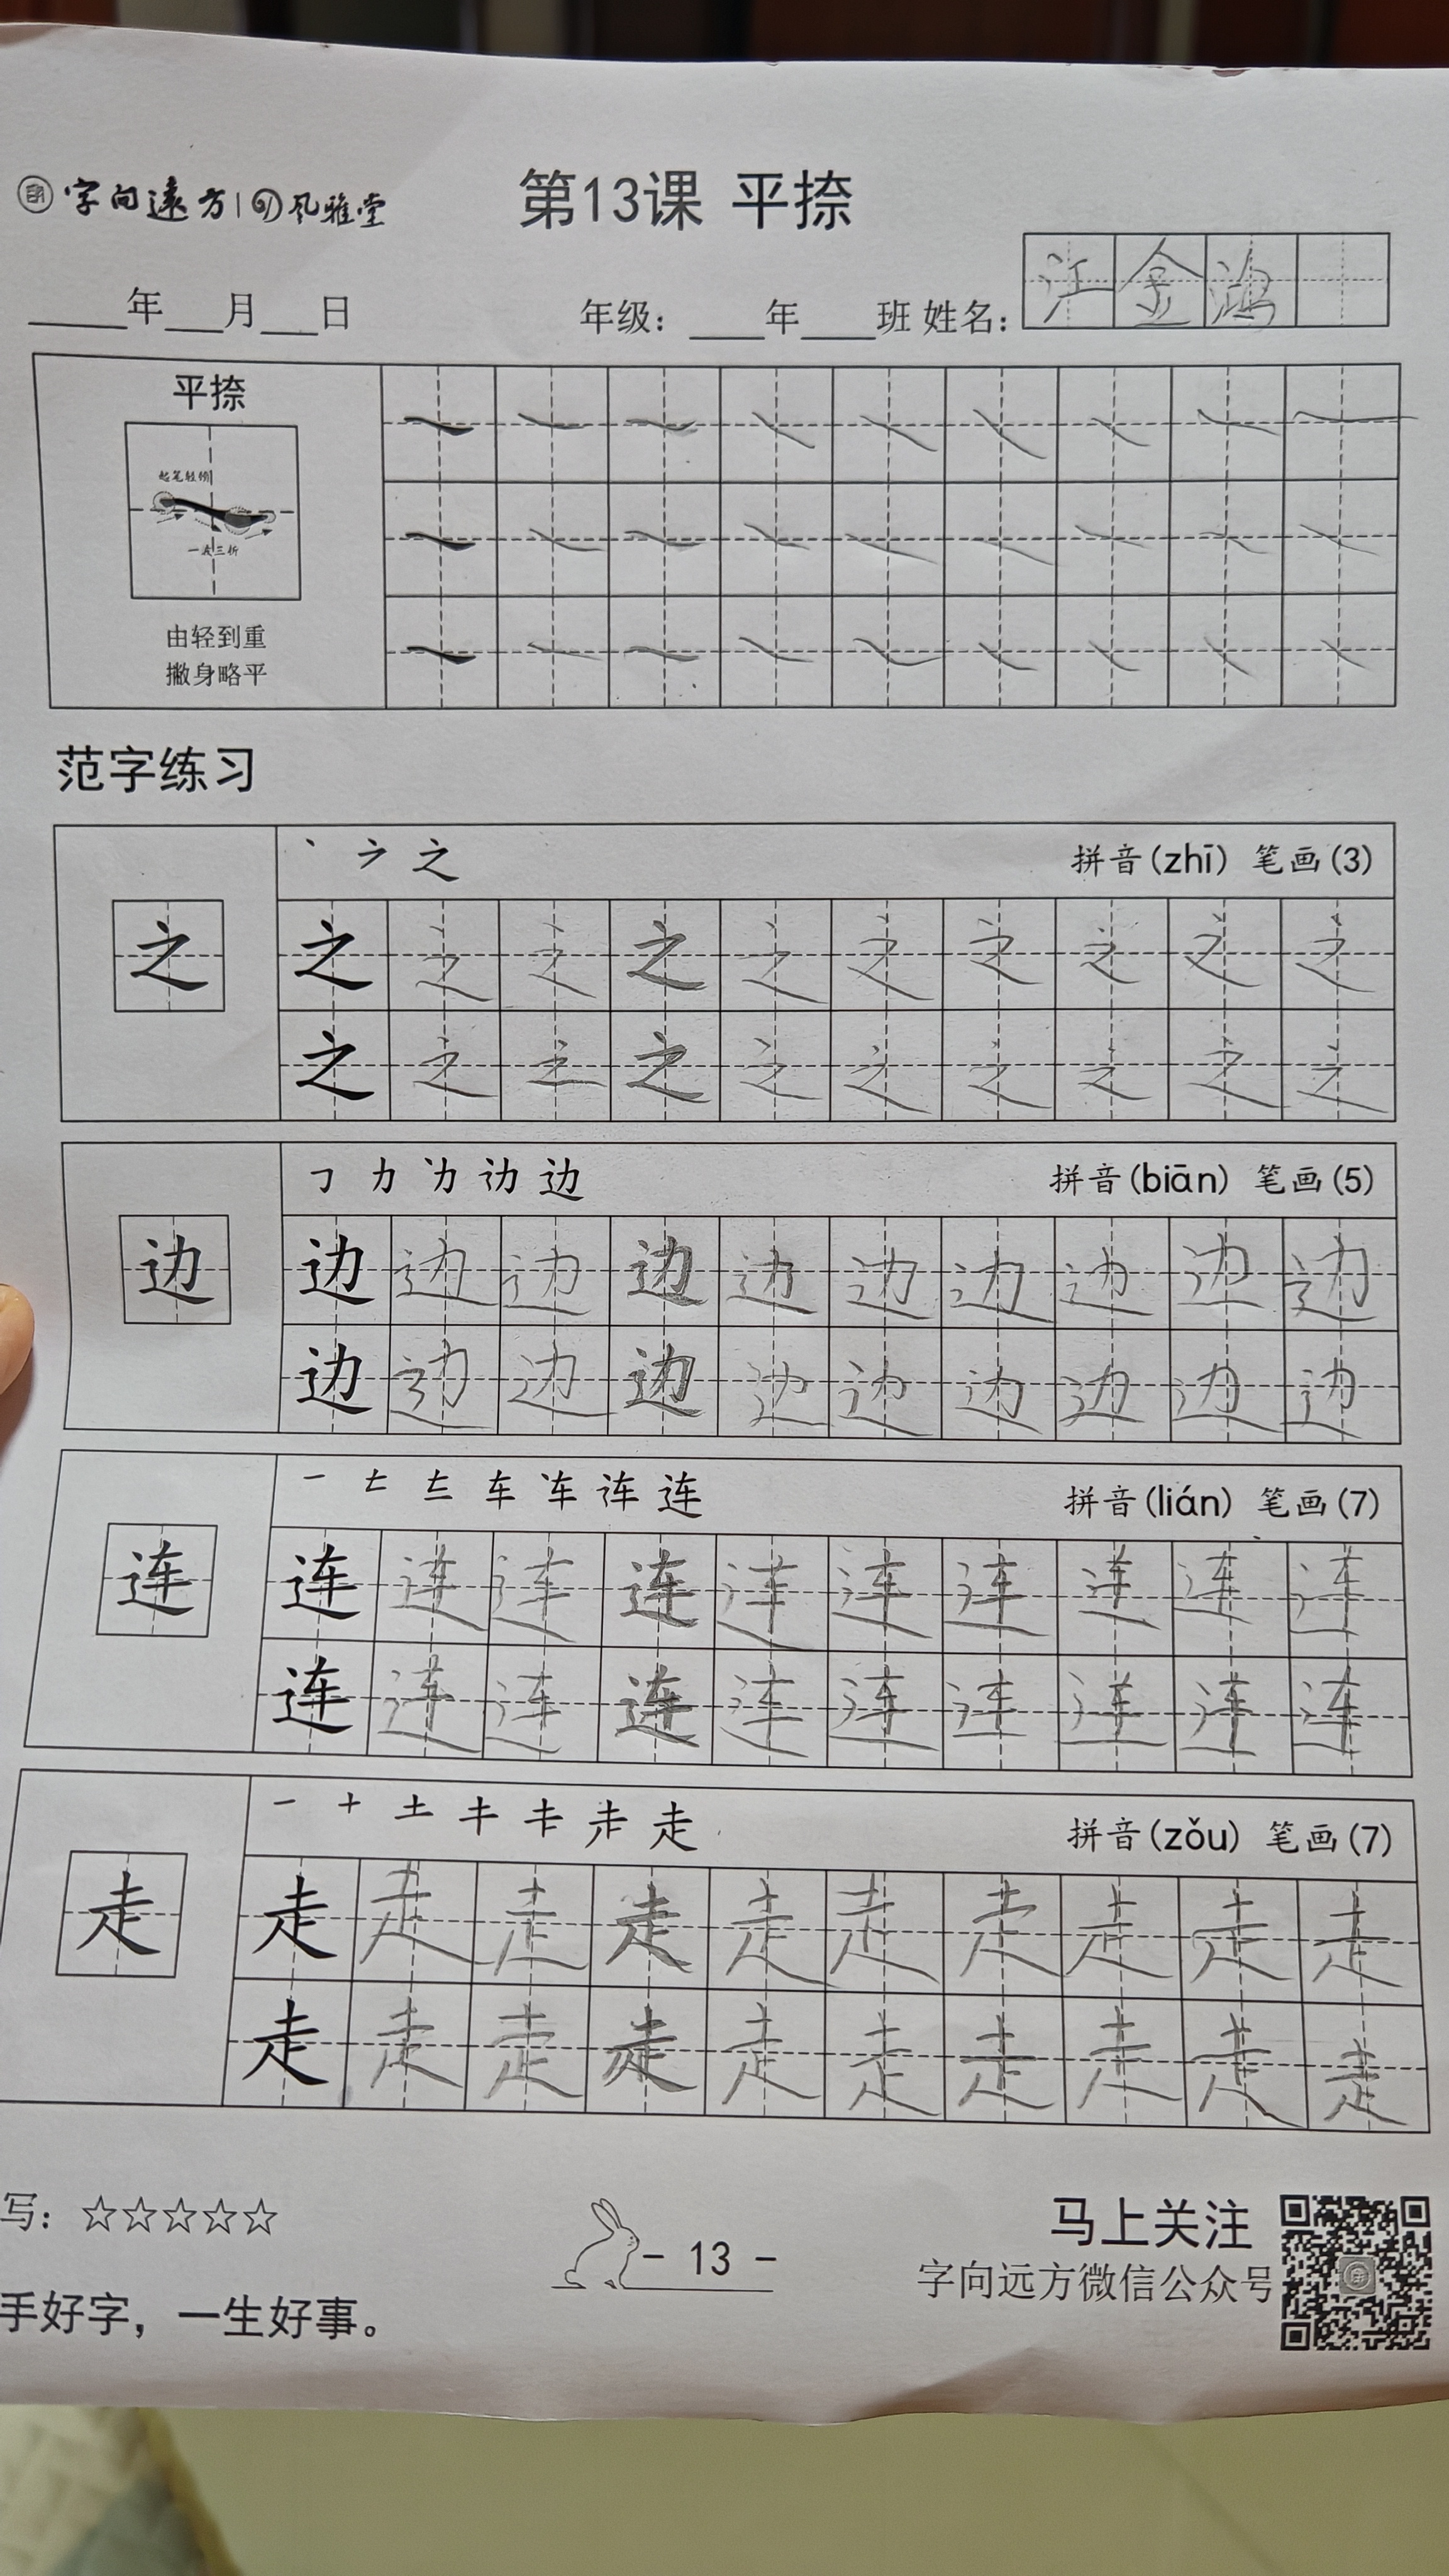 字向遠方 风雅堂
第13课 平捺
江金鸿
____年___月___日 年级：____年____班 姓名：
平捺
起笔轻顿
一波三折
由轻到重
撇身略平
范字练习
丶 ㇇ 之 拼音(zhī) 笔画(3)
之 之 之 之 之 之 之 之 之 之 之
之 之 之 之 之 之 之 之 之 之
力 边 拼音(biān) 笔画(5)
边 边 边 边 边 边 边 边 边 边 边
边 边 边 边 边 边 边 边 边 边
一 车 连 拼音(lián) 笔画(7)
连 连 连 连 连 连 连 连 连 连 连
连 连 连 连 连 连 连 连 连 连
一 十 土 走 拼音(zǒu) 笔画(7)
走 走 走 走 走 走 走 走 走 走 走
走 走 走 走 走 走 走 走 走 走
写：☆☆☆☆☆
- 13 -
马上关注
字向远方微信公众号
手好字，一生好事。